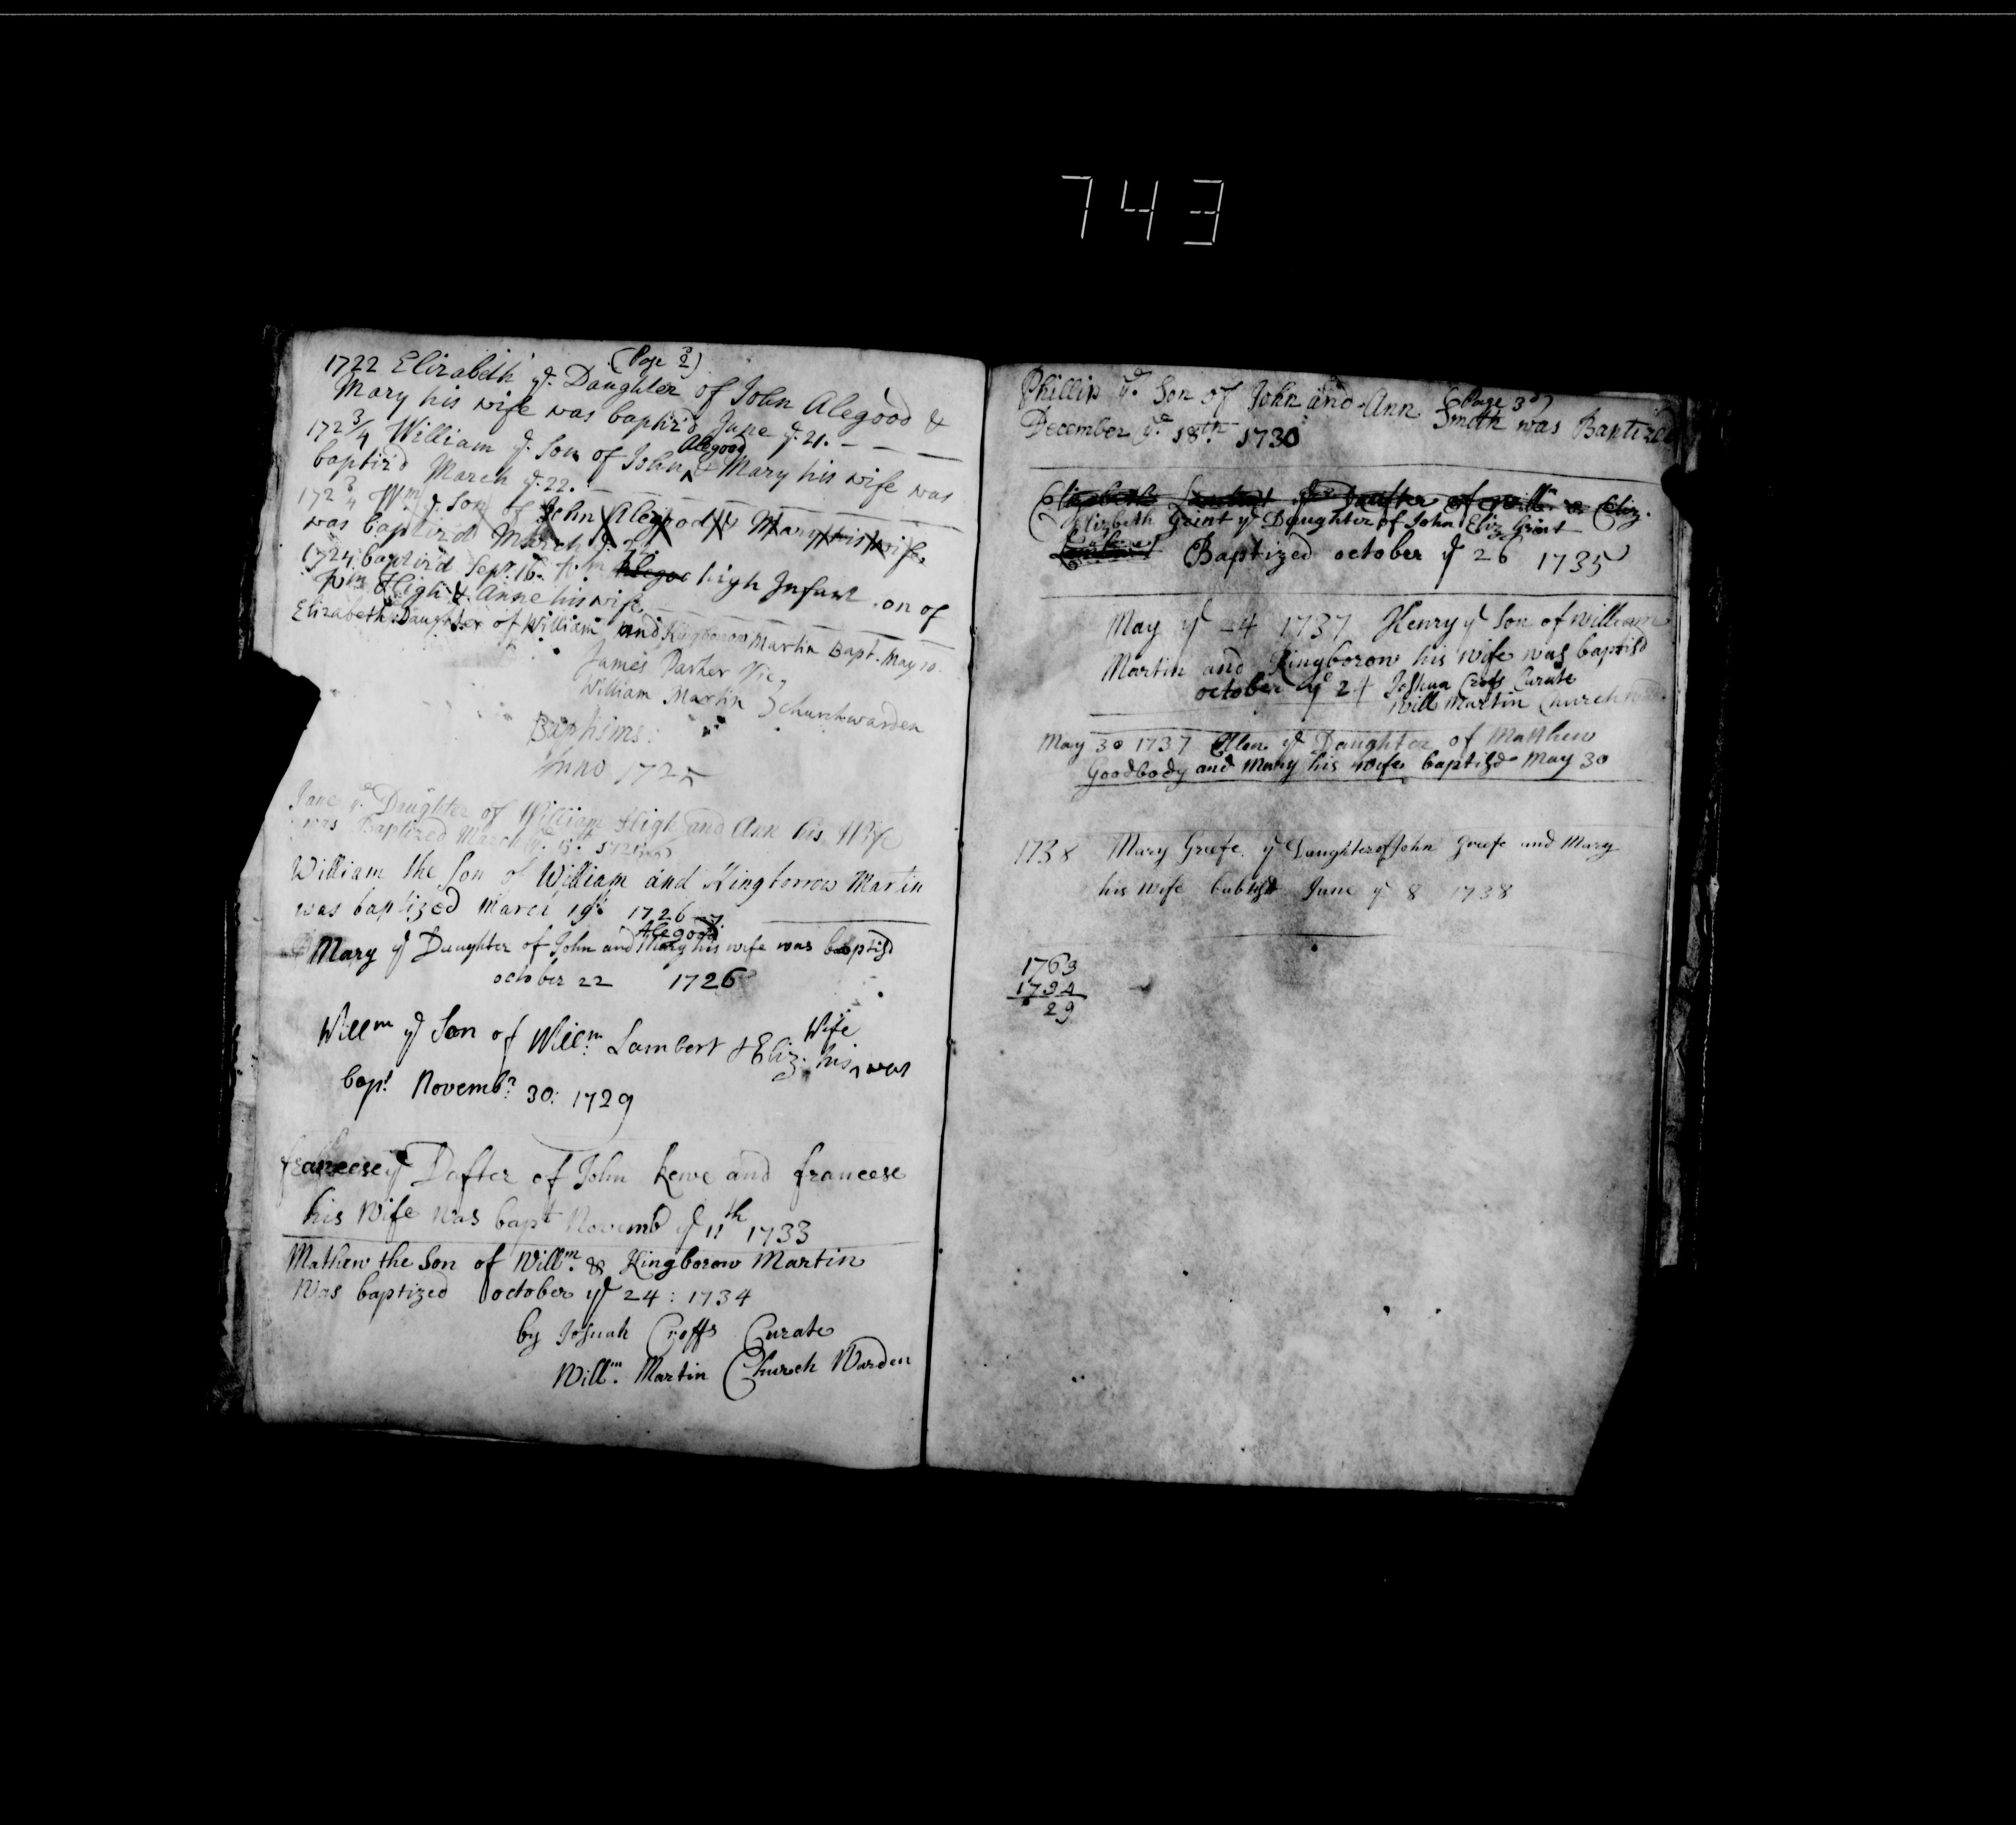 743
(Page 2)
1722 Elizabeth ye. Daughter of John Alegood &
Mary his wife was baptiz'd June ye. 21.
172 3/4 William ye Son of John Alegood & Mary his wife was
baptiz'd March ye. 22.
172 3/4 Wm ye Son of John Alegood & Mary his wife
was baptiz'd March ye. 22.
1724 baptiz'd Sepr. 16. Wm Alegoo high Infant son of
Wm High & Anne his wife
Elizabeth Daughter of William and Kingborow Martin Bapt. May 10.
James Parker Vic.
William Martin } Churchwarden
Baptisms:
Anno 1725
Jane ye Daughter of William High and Ann his Wife
was Baptized March ye.
William the Son of William and Kingborrow Martin
was baptized March 19th 1726
Mary ye Daughter of John and Alegood Mary his wife was baptizd
october 22 1726
Willm ye Son of Willm. Lambert & Eliz: his Wife was
bapt Novembr. 30: 1729
francese ye Dafter of John Kewe and francese
his Wife was bapt Novemb ye 11th 1733
Mathew the Son of Willm. & Kingborow Martin
Was baptized october ye 24: 1734
by Josuah Croffs Curate
Willm. Martin Church Warden
(Page 3d)
Phillip ye. Son of John and Ann Smith was Baptized
December ye. 18th 1730
Elizabeth ye Dafter of Willm & Eliz.
Elizbeth Grint ye Daughter of John Eliz Grint
Baptized october ye 26 1735
May ye 24 1737 Henry ye Son of William
Martin and Kingborow his wife was baptisd
october ye 24 Joshua Cross Curate
Will Martin Church
May 30 1737 Ellen ye Daughter of Matthew
Goodbody and Mary his wife baptizd May 30
1738 Mary Greefe ye Daughter of John Greefe and Mary
his wife babtizd June ye 8 1738
1763
1734
29